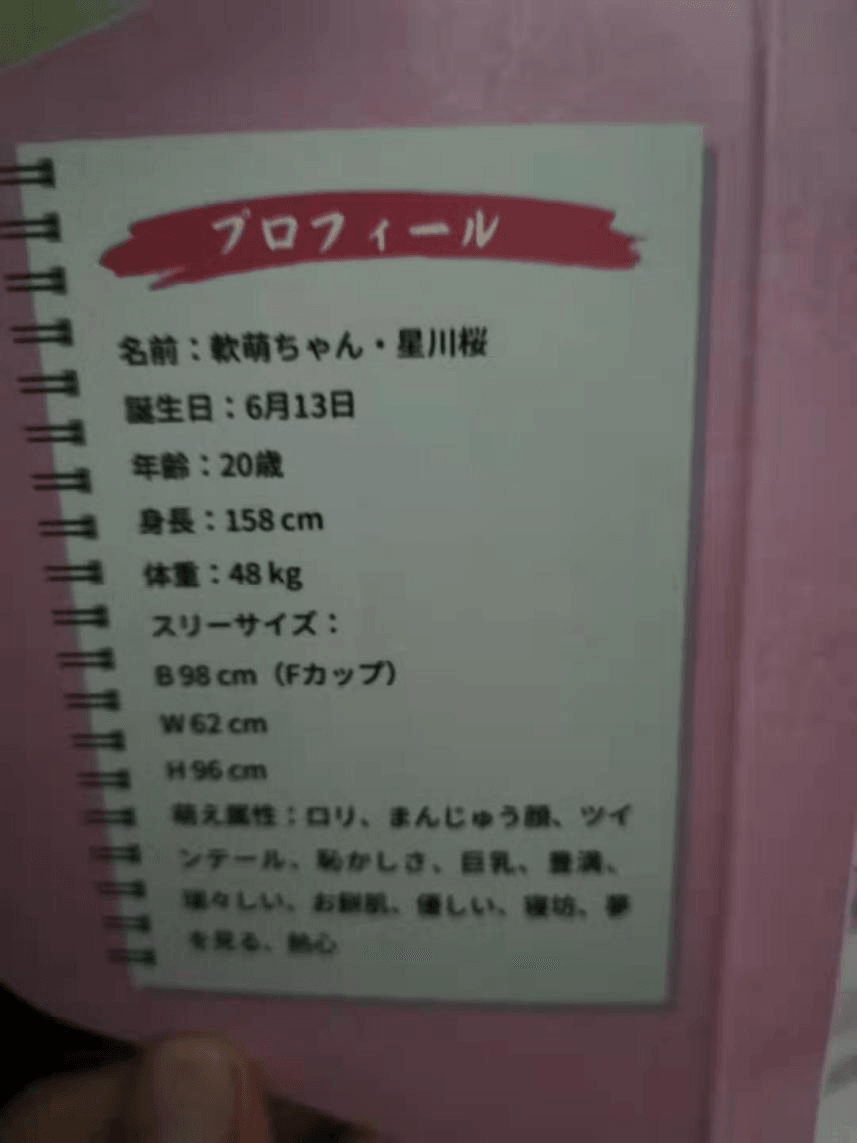 プロフィール
名前：軟萌ちゃん・星川桜
誕生日：6月13日
年齢：20歳
身長：158cm
体重：48kg
スリーサイズ：
B98cm（Fカップ）
W62cm
H96cm
萌え属性：ロリ、まんじゅう顔、ツイ
ンテール、恥かしさ、巨乳、豊満、
瑞々しい、お餅肌、優しい、寝坊、夢
を見る、